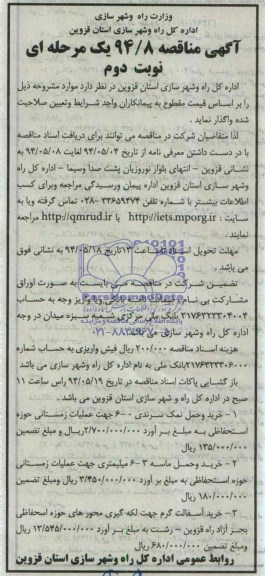 وزارت راه وشهر سازی
اداره کل راه وشهر سازی استان قزوین
آگهی مناقصه ۹۴/۸ یک مرحله ای
نوبت دوم
اداره کل راه وشهر سازی استان قزوین در نظر دارد موارد مشروحه ذیل
را بر اساس قیمت مقطوع به پیمانکاران واجد شرایط وتعیین صلاحیت
شده واگذار نماید .
لذا متقاضیان شرکت در مناقصه می توانند برای دریافت اسناد مناقصه
با در دست داشتن معرفی نامه از تاریخ ۹۴/۰۵/۰۴ لغایت ۹۴/۰۵/۰۸ به
نشانی قزوین - انتهای بلوار نوروزیان پشت صدا وسیما - اداره کل راه
وشهر سازی استان قزوین اداره پیمان ورسیدگی مراجعه وبرای کسب
اطلاعات بیشتر با شماره تلفن ۳۳۶۵۹۴۷۴-۰۲۸ تماس گرفته ویا به
سایت : http://iets.mporg.ir یا http://qmrud.ir مراجعه
نمایند .
مهلت تحویل اسناد ساعت ۱۳ تاریخ ۹۴/۰۵/۱۸ به نشانی فوق
می باشد .
تضمین شرکت در مناقصه می بایست به صورت اوراق
مشارکت بی نام وی واریز وجه به حساب
۲۱۷۶۳۳۳۳۰۴۰۰۴ بانک ملی سبزه میدان در وجه
اداره کل راه وشهر سازی می باشد
هزینه اسناد مناقصه ۲۰۰/۰۰۰ ریال فیش واریزی به حساب شماره
۲۱۷۶۳۳۳۳۰۶۰۰۰ بانک ملی به نام اداره کل راه وشهر سازی می باشد
باز گشایی پاکات اسناد مناقصه در تاریخ ۹۴/۰۵/۱۹ راس ساعت ۱۱
صبح در اداره کل راه و شهر سازی استان قزوین می باشد .
۱ - خرید وحمل نمک سرندی ۰-۶ جهت عملیات زمستانی حوزه
استحفاظی به مبلغ بر آورد ۲/۷۰۰/۰۰۰/۰۰۰ ریال و مبلغ تضمین
۱۳۵/۰۰۰/۰۰۰ ریال
۲ - خرید وحمل ماسه ۳-۶ میلیمتری جهت عملیات زمستانی
حوزه استحفاظی به مبلغ بر آورد ۳/۴۵۰/۰۰۰/۰۰۰ ریال ومبلغ تضمین
۱۸۰/۰۰۰/۰۰۰ ریال
۳ - خرید آسفالت گرم جهت لکه گیری محور های حوزه اسحفاظی
بجز آزاد راه قزوین - رشت به مبلغ بر آورد ۱۳/۵۴۵/۰۰۰/۰۰۰ ریال
ومبلغ تضمین ۶۸۰/۰۰۰/۰۰۰ ریال
روابط عمومی اداره کل راه وشهر سازی استان قزوین